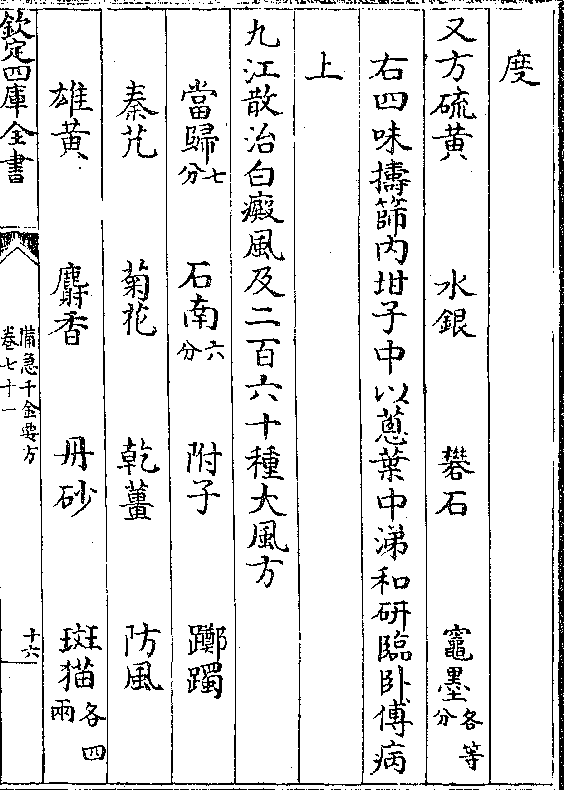 度
又方硫黄　水銀　礬石　竈墨各等分
右四味擣篩内坩子中以蔥葉中涕和研臨卧傅病
上
九江散治白癜風及二百六十種大風方
當歸七分　石南六分　附子　躑躅
秦艽　菊花　乾薑　防風
雄黄　麝香　丹砂　斑猫各四兩
欽定四庫全書
備急千金要方
卷七十一
十六